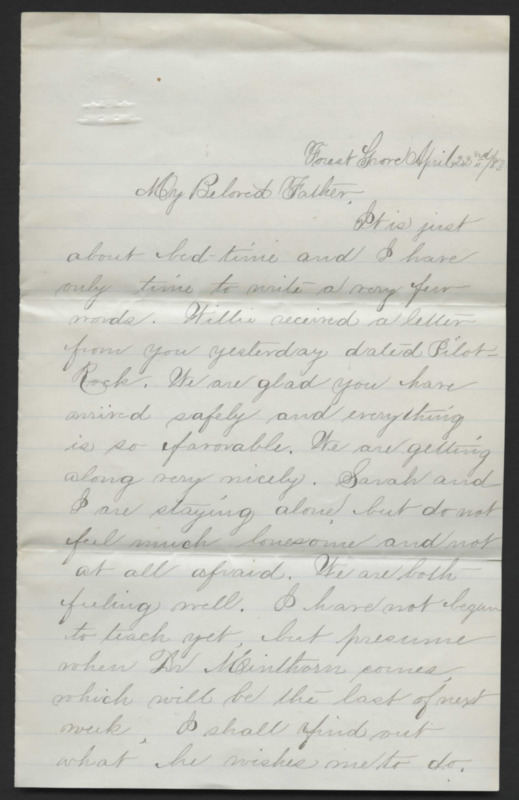 Forest Grove April 23rd/83
My Beloved Father,
It is just
about bed-time and I have
only time to write a very few
words. Willie received a letter
from you yesterday dated Pilot-
Rock. We are glad you have
arrived safely and everything
is so favorable. We are getting
along very nicely. Sarah and
I are staying alone, but do not
feel much lonesome and not
at all afraid. We are both
feeling well. I have not began
to teach yet, but presume
when Dr Minthorn comes,
which will be the last of next
week, I shall find out
what he wishes me to do.